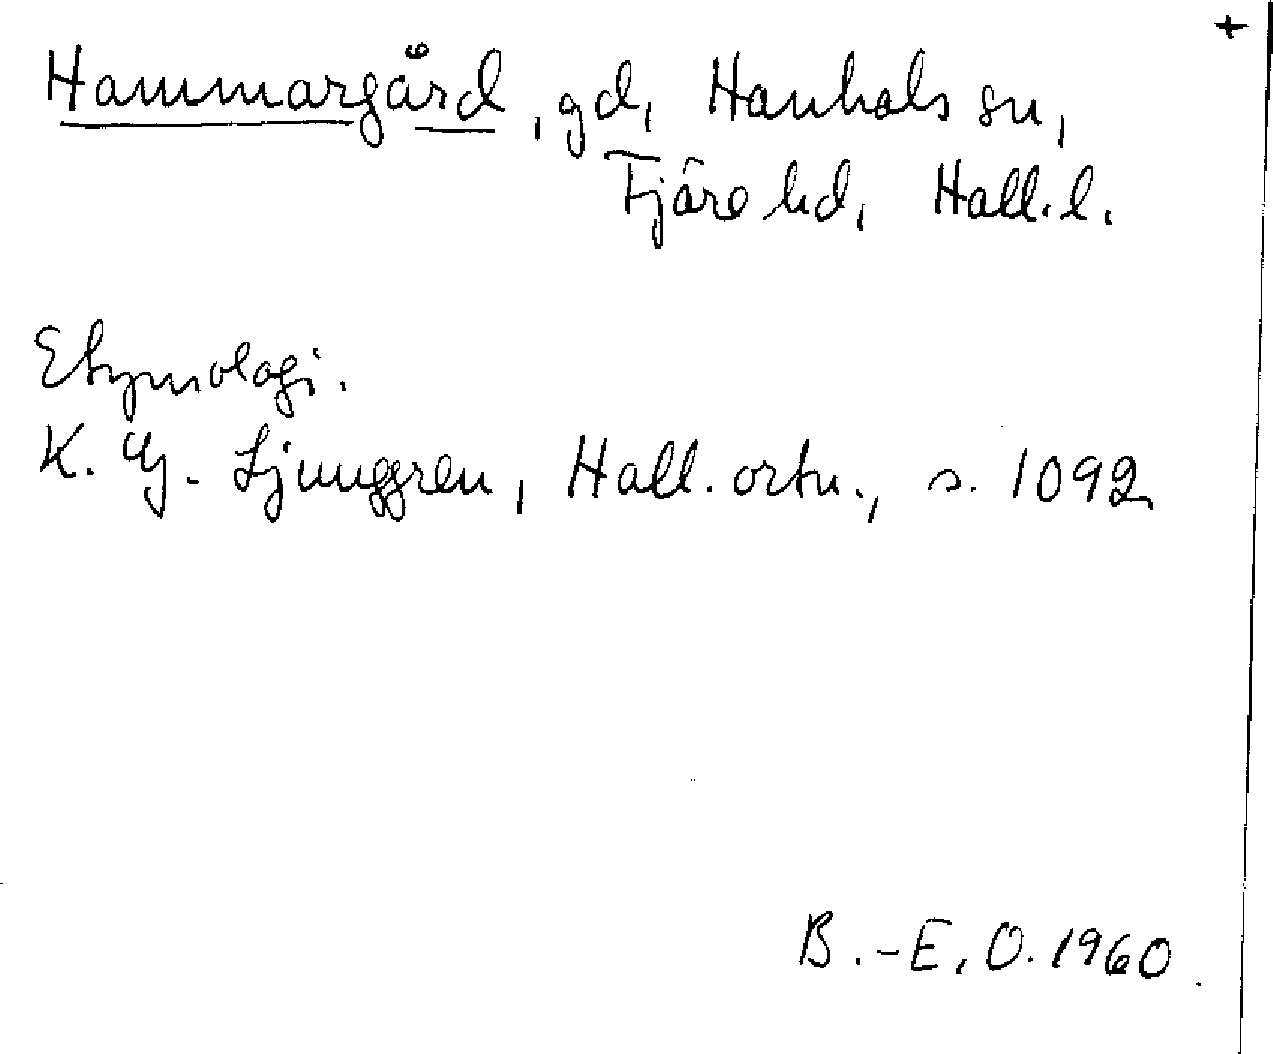 +
Hammargård, gd, Hanhals sn,
Fjäre hd, Hall.l.
Etymologi.
K. G. Ljunggren, Hall. ortn., s. 1092
B.-E. O. 1960.